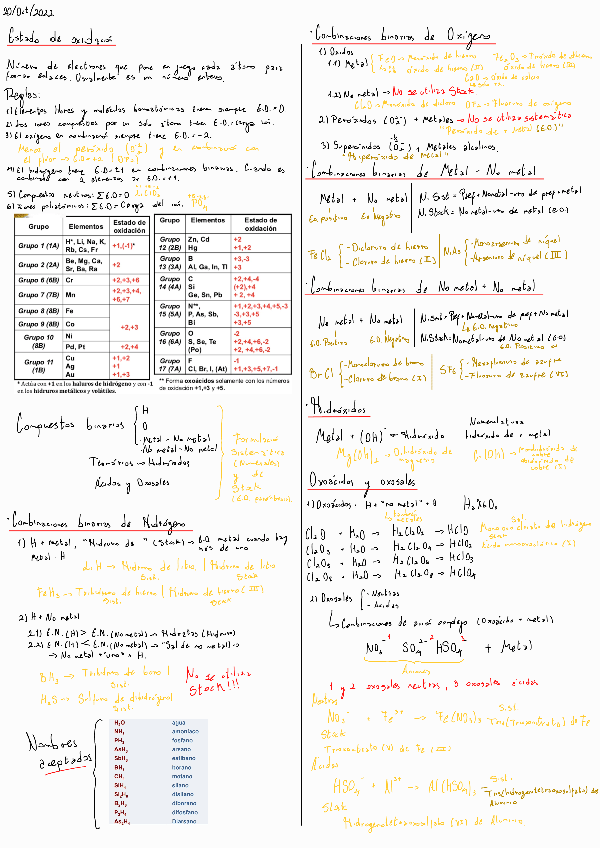 20/Oct/2022
Estado de oxidación
Número de electrones que pone en juego cada átomo para
formar enlaces. Usualmente es un número entero.
Reglas:
1) Elementos libres y moléculas homoatómicas tienen siempre E.O.=0
3) El oxígeno en combinación siempre tiene E.O. = -2.
Menos el peróxido (O₂²⁻) y en combinación con
el flúor → E.O=+2 (OF₂)
5) Compuestos neutros: ΣE.O=0
6) Iones poliatómicos: ΣE.O= Carga del ion.
Grupo Elementos Estado de oxidación
Grupo 1 (1A) H*, Li, Na, K, Rb, Cs, Fr +1,(-1)*
Grupo 2 (2A) Be, Mg, Ca, Sr, Ba, Ra +2
Grupo 6 (6B) Cr +2,+3,+6
Grupo 7 (7B) Mn +2,+3,+4,+6,+7
Grupo 8 (8B) Fe
Grupo 9 (8B) Co +2,+3
Grupo 10 (8B) Ni
Pd, Pt +2,+4
Grupo 11 (1B) Cu +1,+2
Ag +1
Au +1,+3
* Actúa con +1 en los haluros de hidrógeno y con -1
en los hidruros metálicos y volátiles.
Grupo Elementos Estado de oxidación
Grupo 12 (2B) Zn, Cd +2
Hg +1,+2
Grupo 13 (3A) B +3,-3
Al, Ga, In, Tl +3
Grupo 14 (4A) C +2,+4,-4
Si (+2),+4
Ge, Sn, Pb +2,+4
Grupo 15 (5A) N**, +1,+2,+3,+4,+5,-3
P, As, Sb, -3,+3,+5
Bi +3,+5
Grupo 16 (6A) O -2
S, Se, Te +2,+4,+6,-2
(Po) +2,+4,+6,-2
Grupo 17 (7A) F -1
Cl, Br, I, (At) +1,+3,+5,+7,-1
** Forma oxoácidos solamente con los números
de oxidación +1,+3 y +5.
Compuestos binarios
H
O
Metal - No metal
No metal - No metal
Ternarios → Hidróxidos
Ácidos y Oxosales
Formulación
Sistemática
(Numerales)
y de
Stock
Combinaciones binarias de Hidrógeno
1) H + metal, "Hidruro de" (Stock) → E.O metal cuando hay
más de uno
Metal - H
LiH → Hidruro de litio | Hidruro de litio
Sist. Stock
FeH₃ → Trihidruro de hierro | Hidruro de hierro (III)
Sist. Stock
2) H + No metal
2.1) E.N. (H) > E.N. (No metal) → Hidruros (Hidruro)
2.2) E.N. (H) < E.N. (No metal) → "Sal de no metal"
→ No metal + "uro" + H.
BH₃ → Trihidruro de boro
Sist.
H₂S → Sulfuro de dihidrógeno
Sist.
No se utiliza
Stock!!!
Nombres
aceptados
H₂O agua
NH₃ amoníaco
PH₃ fosfano
AsH₃ arsano
SbH₃ estibano
BH₃ borano
CH₄ metano
SiH₄ silano
Si₂H₆ disilano
B₂H₆ diborano
P₂H₄ difosfano
As₂H₄ Diarsano
Combinaciones binarias de Oxígeno
1) Óxidos
1.1) Metal
FeO → Monóxido de hierro
Óxido de hierro (II)
Fe₂O₃ → Trióxido de dihierro
Óxido de hierro (III)
1.2) No metal → No se utiliza Stock
2) Peróxidos (O₂²⁻) + Metales → No se utiliza sistemática
"Peróxido de + Metal (E.O)"
3) Superóxidos (O₂⁻) + Metales alcalinos.
"Superóxido de Metal"
Combinaciones binarias de Metal - No metal
Metal + No metal
E.o positivo E.o Negativo
N. Sist = Pref+Nometal+uro de pref+metal
N. Stock = No metal+uro de metal (E.O)
FeCl₂ - Dicloruro de hierro
- Cloruro de hierro (II)
NiAs - Monoarseniuro de níquel
- Arseniuro de níquel (III)
Combinaciones binarias de No metal + No metal
No metal + No metal
E.O. Positivo E.O. Negativo
N.Sist = Pref+Nometal+uro de pref+No metal
↳ E.O. Negativo
N.Stock = Nometal+uro de No metal (E.O)
E.O. Positivo
BrCl - Monocloruro de bromo
- Cloruro de bromo (I)
SF₆ - Hexafluoruro de azufre
- Fluoruro de azufre (VI)
Hidróxidos
Metal + (OH)⁻ → Hidróxido
Nomenclatura
hidróxido de + metal
Mg(OH)₂ → Dihidróxido de
magnesio
Oxoácidos y oxosales
1) Oxoácidos. H + "no metal" + O
Cl₂O + H₂O → H₂Cl₂O₂ → HClO
Cl₂O₃ + H₂O → H₂Cl₂O₄ → HClO₂
Cl₂O₅ + H₂O → H₂Cl₂O₆ → HClO₃
Cl₂O₇ + H₂O → H₂Cl₂O₈ → HClO₄
Sist.
Stock
2) Oxosales - Neutras
- Ácidas
↳ Combinaciones de anión complejo (Oxoácido + metal)
NO₃⁻¹ SO₄²⁻ HSO₄⁻ + Metal
Aniones
1 y 2 oxosales neutras, 3 oxosales ácidas
Neutras
NO₃⁻ + Fe³⁺ → Fe(NO₃)₃
Sist
Tris(Trioxonitrato) de Fe
Stock
Trioxonitrato (V) de Fe (III)
Ácidas
HSO₄⁻ + Al³⁺ → Al(HSO₄)₃
Sist.
Tris(hidrogenotetraoxosulfato) de
Aluminio
Stock
Hidrogenotetraoxosulfato (VI) de Aluminio